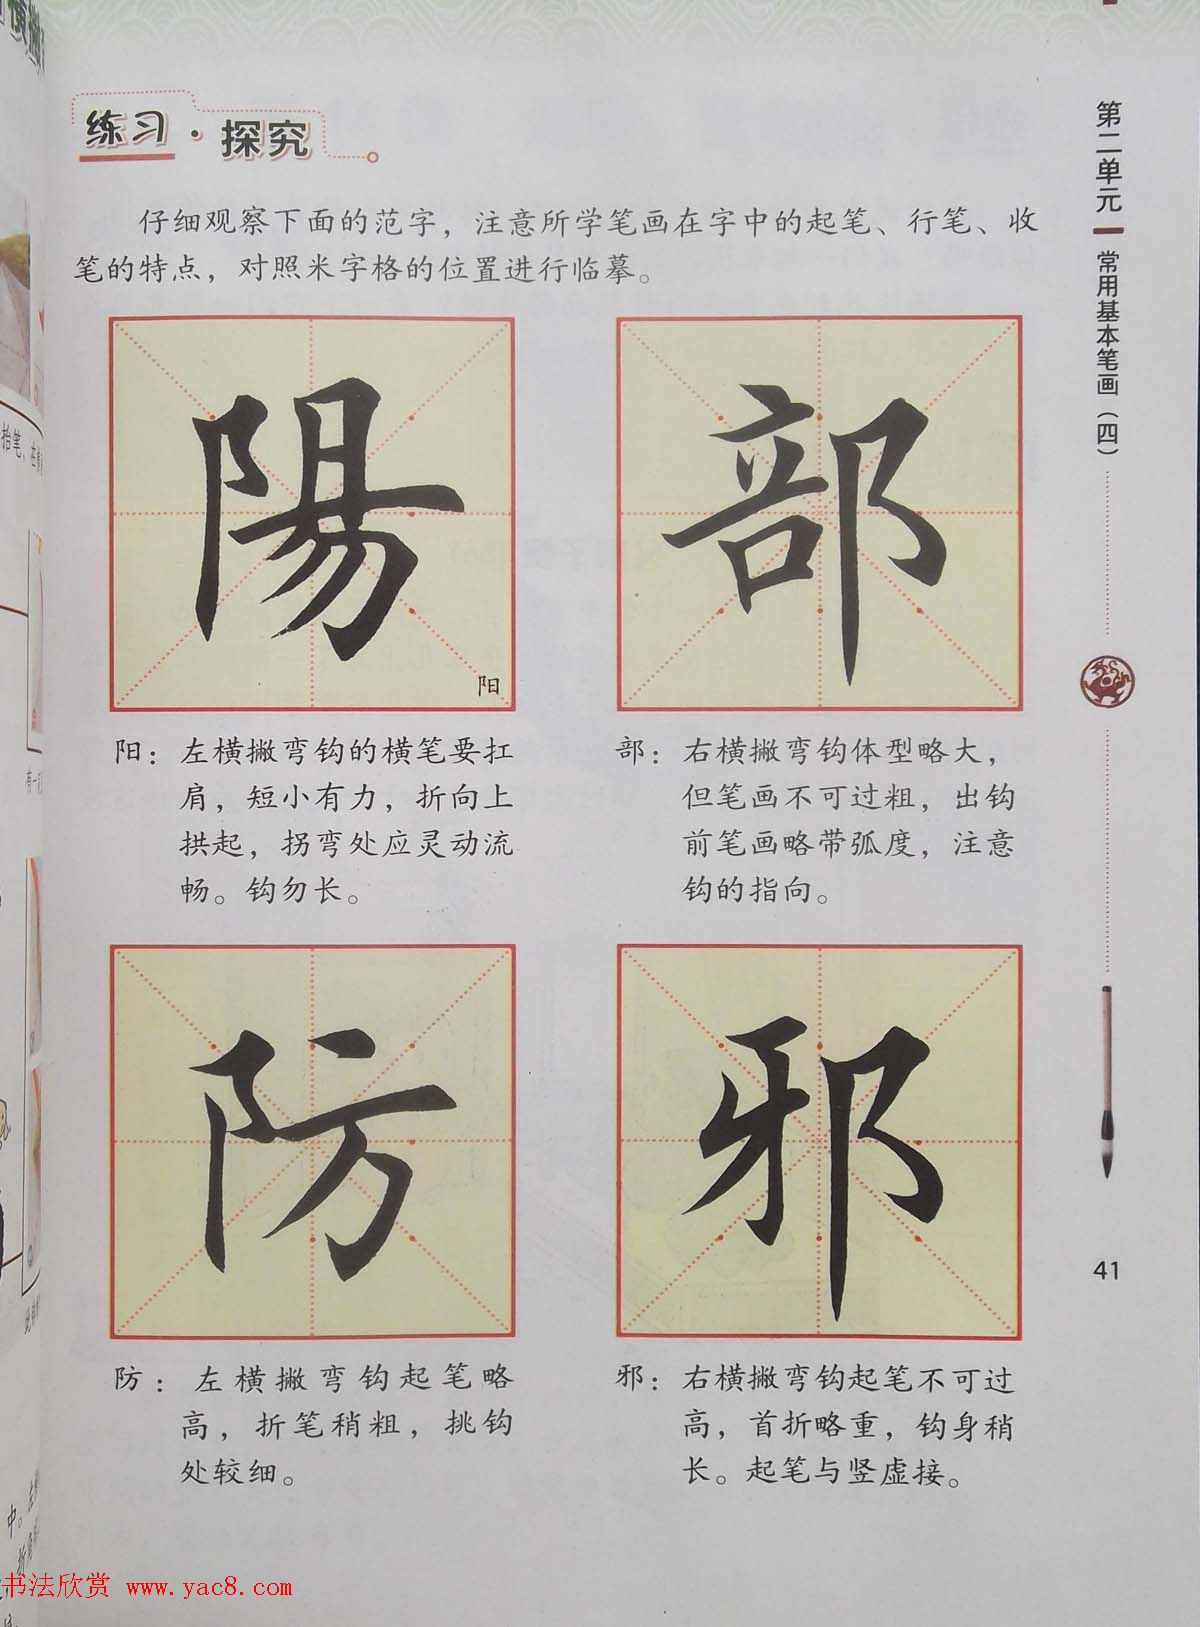 练习·探究
仔细观察下面的范字，注意所学笔画在字中的起笔、行笔、收
笔的特点，对照米字格的位置进行临摹。
陽
阳
部
阳：左横撇弯钩的横笔要扛
肩，短小有力，折向上
拱起，拐弯处应灵动流
畅。钩勿长。
部：右横撇弯钩体型略大，
但笔画不可过粗，出钩
前笔画略带弧度，注意
钩的指向。
防
邪
防：左横撇弯钩起笔略
高，折笔稍粗，挑钩
处较细。
邪：右横撇弯钩起笔不可过
高，首折略重，钩身稍
长。起笔与竖虚接。
第二单元
常用基本笔画（四）
41
抬笔，在
有一
中。
书法欣赏 www.yac8.com